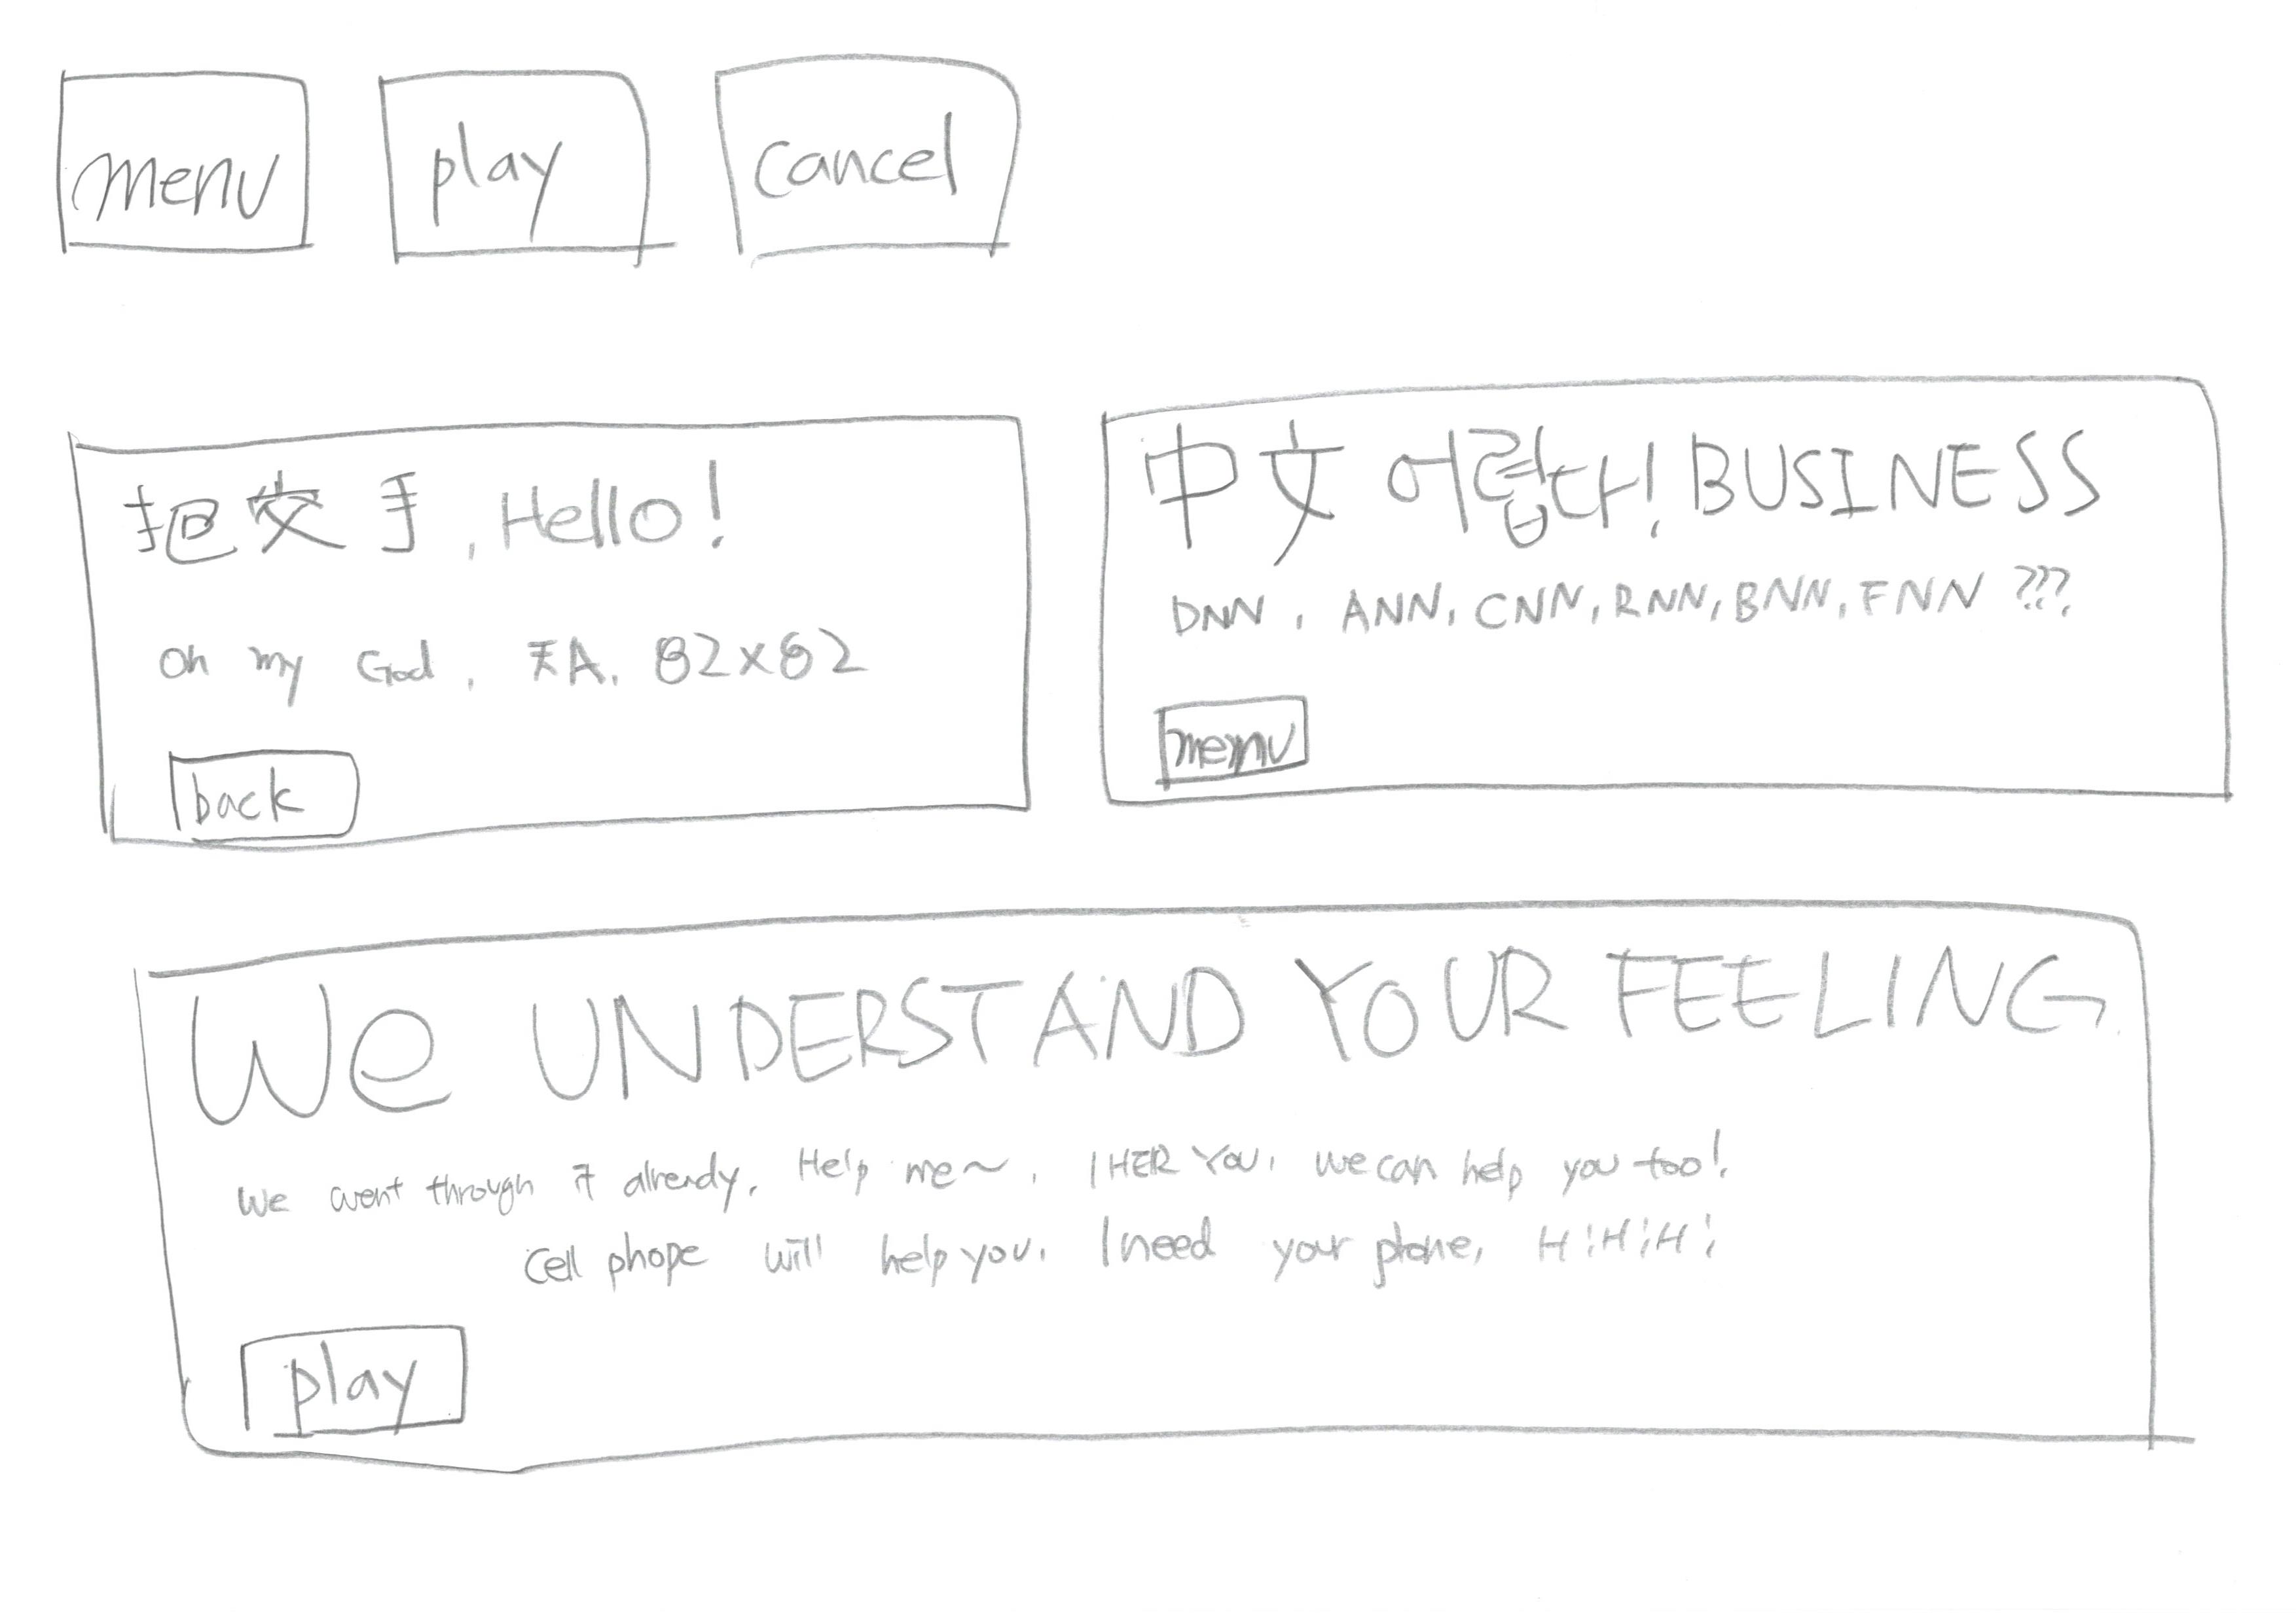 menu
play
cancel
把交手, Hello!
oh my God, 天A. 82x82
back
中文 어렵다! BUSINESS
DNN, ANN, CNN, RNN, BNN, FNN ???
menu
We UNDERSTAND YOUR FEELING
We went through it already. Help me~, I HER YOU, we can help you too!
Cell phope will help you. I need your phone, HiHiHi
play